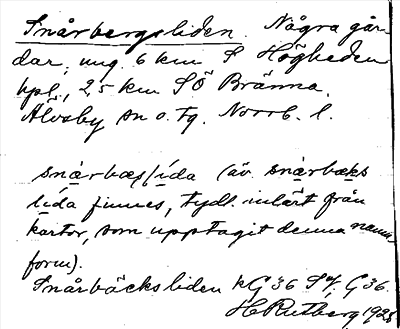 Snårbergsliden. Några går-
dar, ung. 6 km S Högheden
hpl., 25 km SÖ Bränna.
Älvsby sn o. tg. Norrb. l.
snårbæs/lída (äv. snårbæks
lída finnes, tydl. inlärt från
kartor, som upptagit denna namn
form).
Snårbäcksliden kG36 S4. G36.
H Rutberg 1928